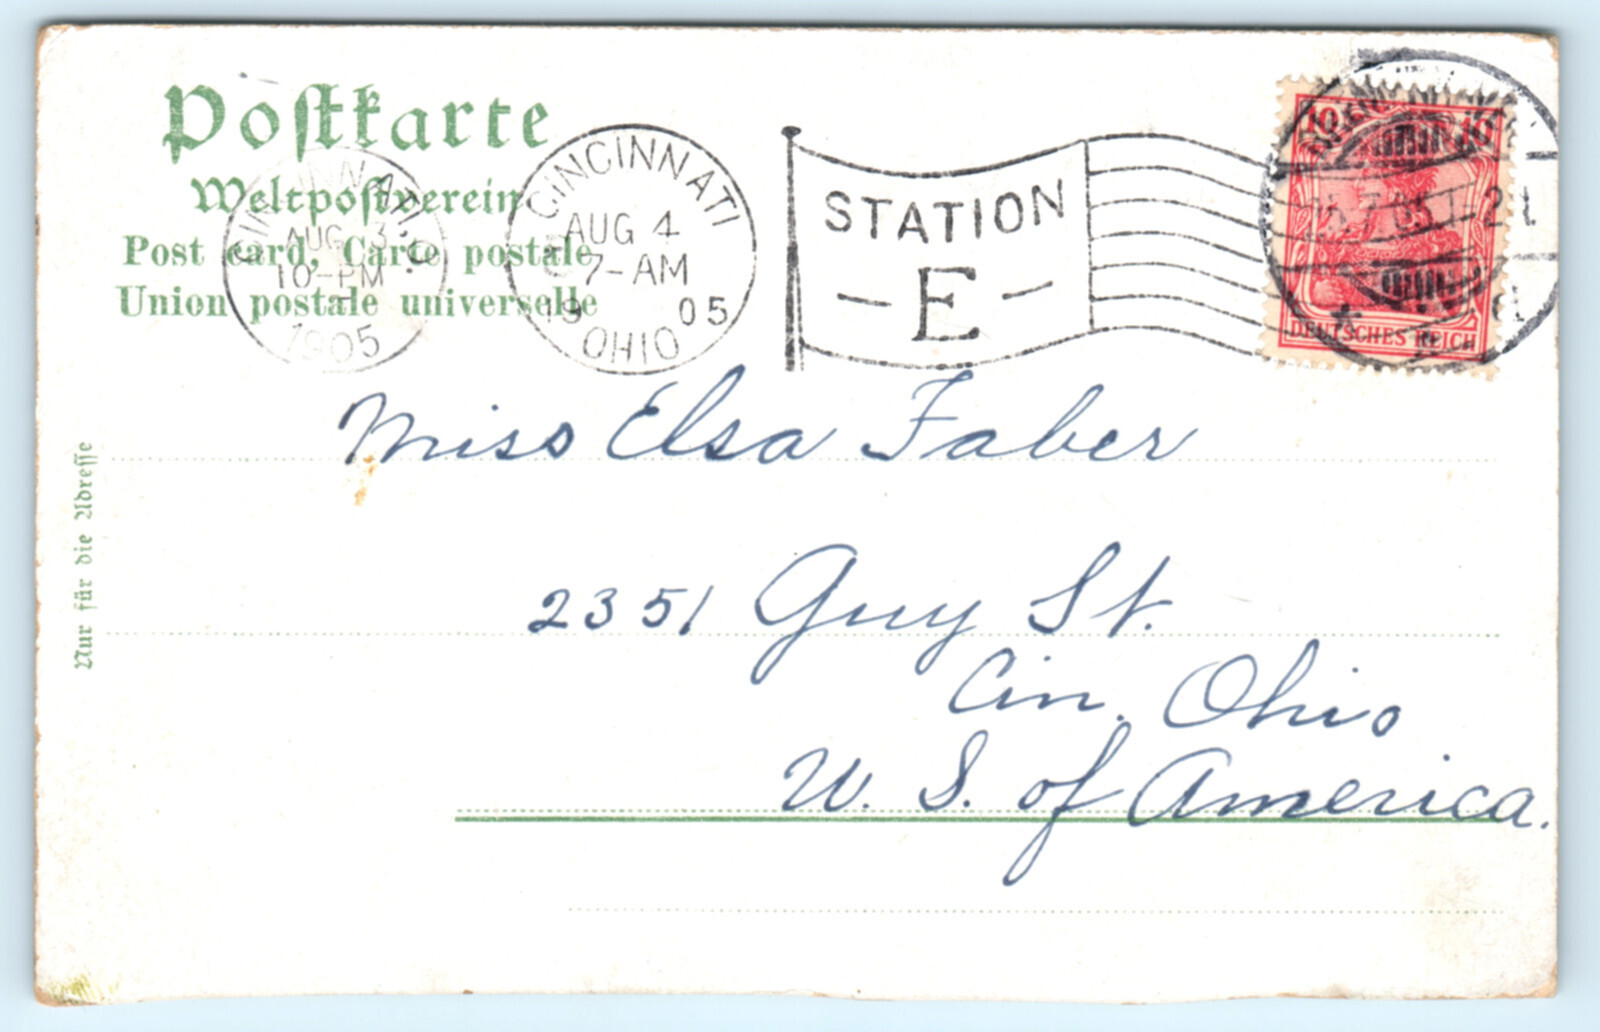 Postkarte
Weltpostverein
Post card, Carte postale
Union postale universelle
CINCINNATI, O.
AUG 3
10-PM
1905
CINCINNATI
AUG 4
7-AM
19 05
OHIO
STATION
- E -
10 10
DEUTSCHES REICH
Miss Elsa Faber
2351 Guy St.
Cin. Ohio
U. S. of America.
Nur für die Adresse